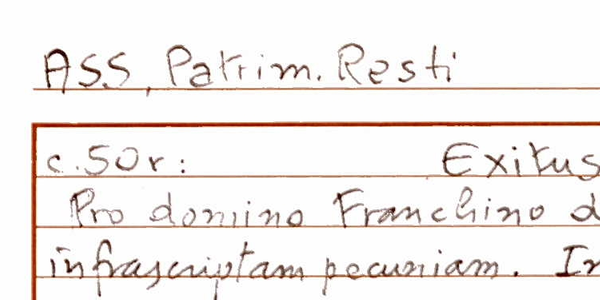 ASS, Patrim. Resti
c. 50r: Exitus
Pro domino Franchino
infrascriptam pecuniam. In